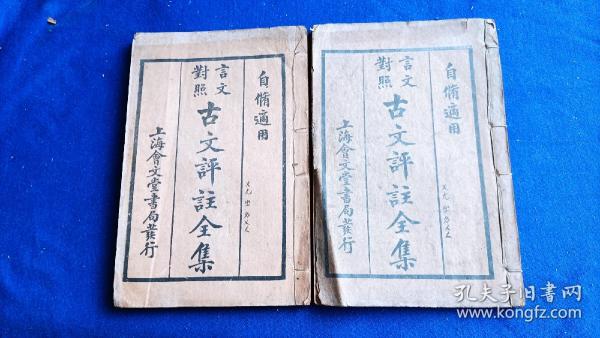 自脩適用
言文
對照
古文評註全集
上海會文堂書局發行
自脩適用
言文
對照
古文評註全集
上海會文堂書局發行
孔夫子旧書网
www.kongfz.com